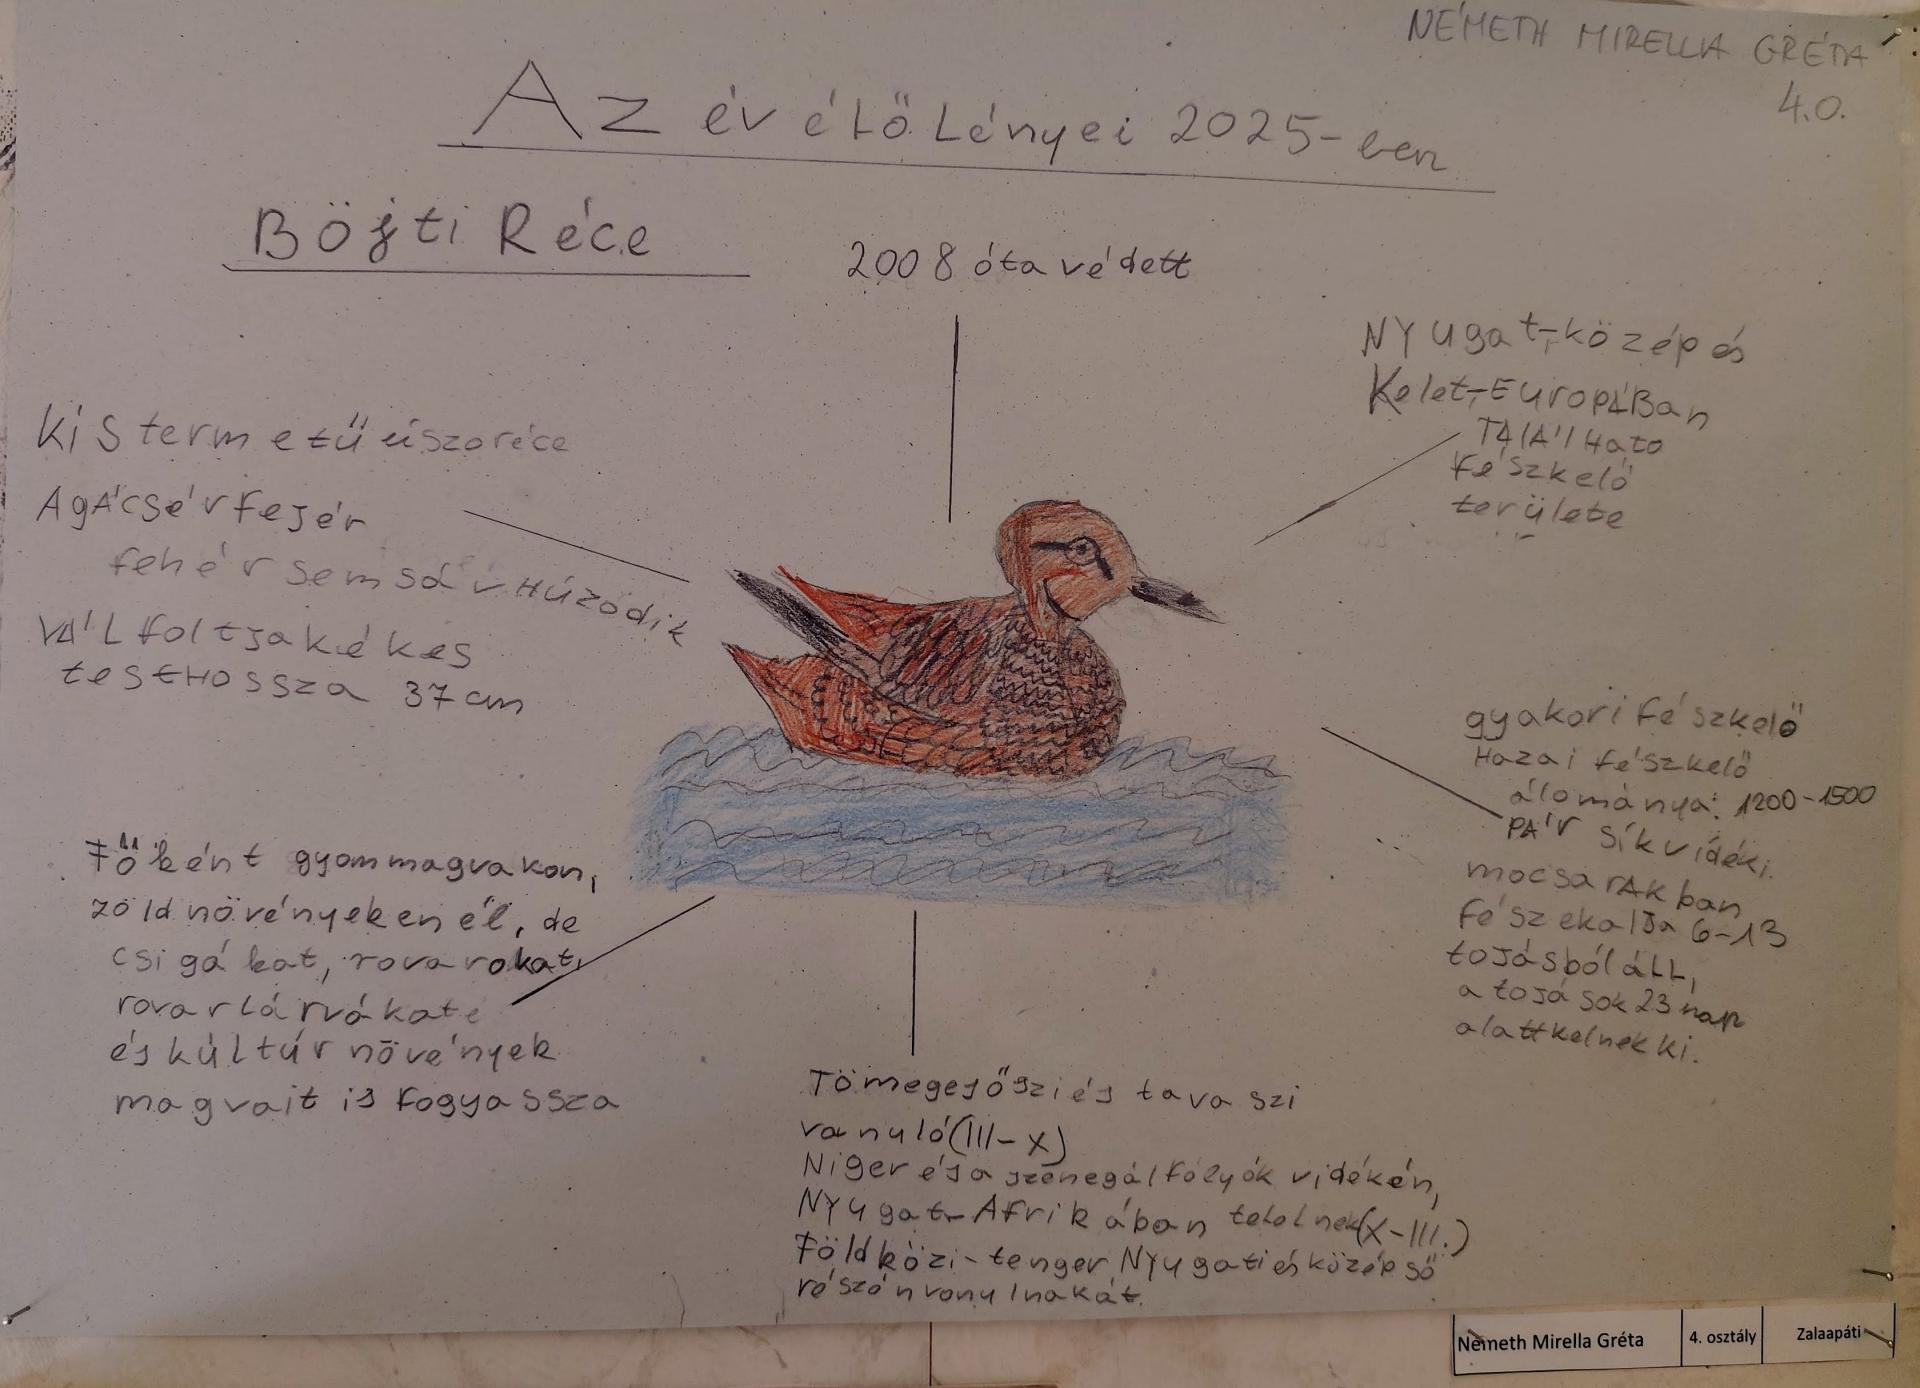 NÉMETH MIRELLA GRÉTA
4.O.
Az év élőlényei 2025-ben
Böjti Réce
2008 óta védett
Nyugat-, közép és
Kelet-, EurópÁBan
TAlÁlHato
fészkelő
területe
Kis termetű úszoréce
A gÁcsér fejér
fehér sem sáv Húzódik
VÁLL foltja kékes
testHossza 37 cm
gyakori fészkelő
Hazai fészkelő
álománya: 1200-1500
PÁr síkvidéki
mocsarAkban
fészekalja 6-13
tojásból áLL,
a tojások 23 nap
alatt kelnek ki.
Főként gyommagvakon,
zöld növényeken él, de
csigákat, rovarokat,
rovarlárvákat
és kúltúr növények
magvait is fogyassza
Tömeges őszi és tavaszi
vanuló (III-X)
Niger és a szenegál folyók vidékén,
Nyugat-Afrikában telelnek (X-III.)
Földközi-tenger Nyugati és középső
részén vonulnak át.
Németh Mirella Gréta
4. osztály
Zalaapáti